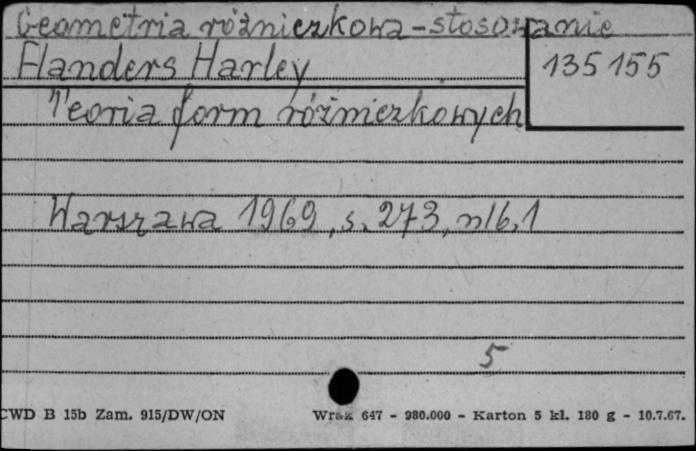 Geometria różniczkowa-stosowanie
Flanders Harley
135 155
Teoria form różniczkowych
Warszawa 1969, s. 273, nlb. 1
5
CWD B 15b Zam. 915/DW/ON
Wrak 647 - 980.000 - Karton 5 kl. 180 g - 10.7.67.